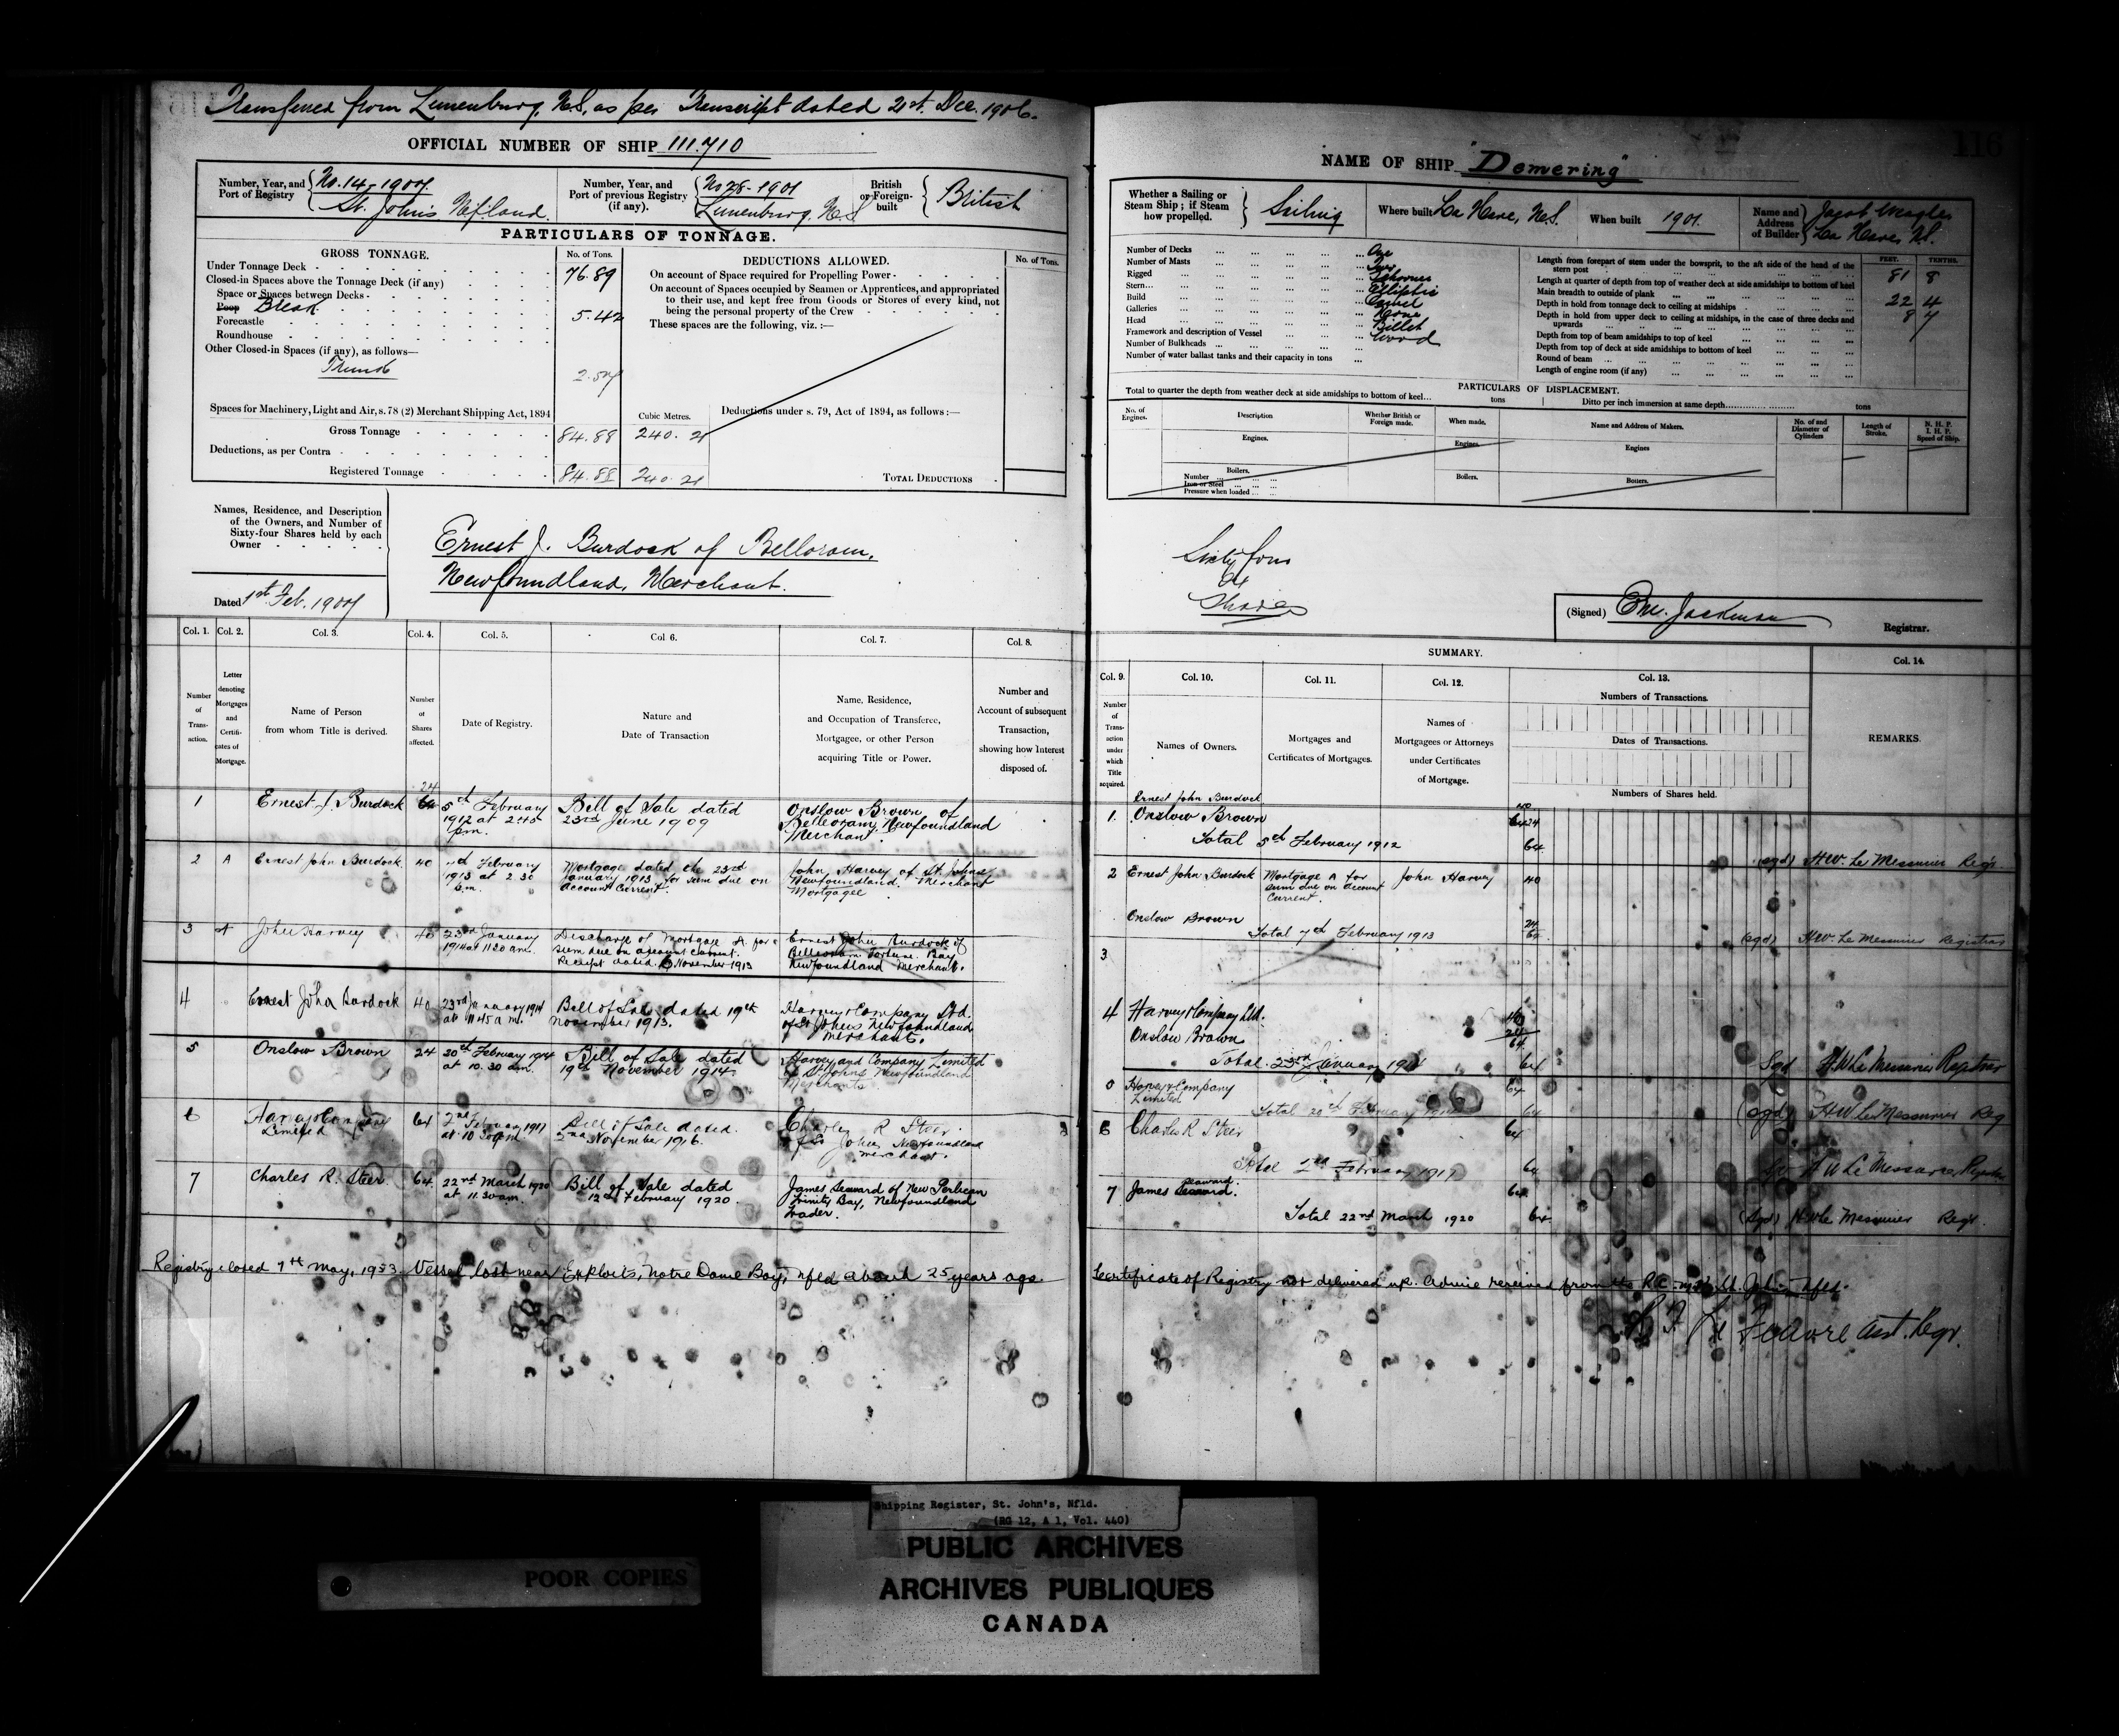 Transferred from Lunenburg, N.S. as per Transcript dated 21st. Dec. 1906.
OFFICIAL NUMBER OF SHIP 111.710
Number, Year, and Port of Registry
No. 14 - 1907
St. John's Nfland.
Number, Year, and Port of previous Registry (if any).
No 28 - 1901
Lunenburg, N.S
British or Foreign-built
British
PARTICULARS OF TONNAGE.
GROSS TONNAGE.
No. of Tons.
Under Tonnage Deck 76.89
Closed-in Spaces above the Tonnage Deck (if any)
Space or Spaces between Decks
Poop Break 5.42
Forecastle
Roundhouse
Other Closed-in Spaces (if any), as follows—
Trunk 2.57
Spaces for Machinery, Light and Air, s. 78 (2) Merchant Shipping Act, 1894
Cubic Metres.
Gross Tonnage 84.88 240.21
Deductions, as per Contra
Registered Tonnage 84.88 240.21
DEDUCTIONS ALLOWED.
No. of Tons.
On account of Space required for Propelling Power
On account of Spaces occupied by Seamen or Apprentices, and appropriated
to their use, and kept free from Goods or Stores of every kind, not
being the personal property of the Crew
These spaces are the following, viz. :—
Deductions under s. 79, Act of 1894, as follows :—
TOTAL DEDUCTIONS
Names, Residence, and Description
of the Owners, and Number of
Sixty-four Shares held by each
Owner
Dated 1st Feb. 1907
Ernest J. Burdock of Belloram,
Newfoundland, Merchant.
Col. 1.
Col. 2.
Col. 3.
Col. 4.
Col. 5.
Col. 6.
Col. 7.
Col. 8.
Number of Transaction.
Letter denoting Mortgages and Certificates of Mortgage.
Name of Person from whom Title is derived.
Number of Shares affected.
Date of Registry.
Nature and Date of Transaction
Name, Residence, and Occupation of Transferee, Mortgagee, or other Person acquiring Title or Power.
Number and Account of subsequent Transaction, showing how Interest disposed of.
1 Ernest J. Burdock 24 64 5th February 1912 at 2.45 p.m. Bill of Sale dated 23rd June 1909 Onslow Brown of Belleoram, Newfoundland Merchant
2 A Ernest John Burdock 40 7th February 1913 at 2.30 p.m. Mortgage dated the 23rd January 1913 for sum due on Account Current. John Harvey of St. Johns, Newfoundland. Merchant Mortgagee
3 A John Harvey 40 23rd January 1914 at 11.20 a.m. Discharge of Mortgage A. for sum due on account current. Receipt dated November 1913 Ernest John Burdock of Belleoram Fortune Bay Newfoundland Merchant.
4 Ernest John Burdock 40 23rd January 1914 at 11.45 a.m. Bill of Sale dated 19th November 1913. Harvey & Company Ltd. of St Johns Newfoundland Merchants.
5 Onslow Brown 24 20th February 1914 at 10.30 a.m. Bill of Sale dated 19th November 1914 Harvey and Company Limited of St Johns Newfoundland Merchants
6 Harvey & Company Limited 64 2nd February 1917 at 10.30 a.m. Bill of Sale dated 2nd November 1916. Charles R Steer of St John's Newfoundland merchant.
7 Charles R. Steer 64 22nd March 1920 at 11.30 am. Bill of Sale dated 12th February 1920 James Seaward of New Perlican Trinity Bay, Newfoundland Trader.
Registry closed 7th May, 1953. Vessel lost near Exploits, Notre Dame Bay, Nfld about 25 years ago.
116
NAME OF SHIP "Demering"
Whether a Sailing or Steam Ship; if Steam how propelled.
Sailing
Where built La Have, N.S.
When built 1901.
Name and Address of Builder
La Have N.S.
Number of Decks One
Number of Masts Two
Rigged Schooner
Stern Elliptic
Build Carvel
Galleries None
Head Billet
Framework and description of Vessel Wood
Number of Bulkheads
Number of water ballast tanks and their capacity in tons
FEET. TENTHS.
Length from forepart of stem under the bowsprit, to the aft side of the head of the stern post 81 8
Length at quarter of depth from top of weather deck at side amidships to bottom of keel
Main breadth to outside of plank 22 4
Depth in hold from tonnage deck to ceiling at midships 8 7
Depth in hold from upper deck to ceiling at midships, in the case of three decks and upwards
Depth from top of beam amidships to top of keel
Depth from top of deck at side amidships to bottom of keel
Round of beam
Length of engine room (if any)
PARTICULARS OF DISPLACEMENT.
Total to quarter the depth from weather deck at side amidships to bottom of keel... tons
Ditto per inch immersion at same depth tons
No. of Engines.
Description
Whether British or Foreign made.
When made.
Name and Address of Makers.
No. of and Diameter of Cylinders
Length of Stroke.
N. H. P.
I. H. P.
Speed of Ship.
Engines.
Engines.
Engines
Boilers.
Number
Iron or Steel
Pressure when loaded
Boilers.
Boilers.
Sixty four
64
Shares
(Signed) Jackman
Registrar.
SUMMARY.
Col. 9.
Col. 10.
Col. 11.
Col. 12.
Col. 13.
Col. 14.
Number of Transaction under which Title acquired.
Names of Owners.
Mortgages and Certificates of Mortgages.
Names of Mortgagees or Attorneys under Certificates of Mortgage.
Numbers of Transactions.
Dates of Transactions.
Numbers of Shares held.
REMARKS.
Ernest John Burdock 40
1. Onslow Brown 24
Total 5th February 1912 64
(sgd) H.W. Le Messurier Regr.
2 Ernest John Burdock Mortgage A for sum due on account Current. John Harvey 40
Onslow Brown 24
Total 7th February 1913 64
(sgd) H.W. Le Messurier Registrar
3
4 Harvey & Company Ltd. 40
Onslow Brown 24
Total 23rd January 1914 64
Sgd H W Le Messurier Registrar
Harvey & Company Limited 64
Total 20th February 1914 64
(sgd) H.W. Le Messurier Reg
6 Charles R Steer 64
Total 2nd February 1917 64
H W Le Messurier Registrar
7 James Seaward. 64
Total 22nd March 1920 64
(Sgd) H W Le Messurier Regr.
Certificate of Registry not delivered up. Advice received from the St. John's Nfld.
Le Feuvre Asst. Regr.
Shipping Register, St. John's, Nfld.
(RG 12, A 1, Vol. 440)
PUBLIC ARCHIVES
ARCHIVES PUBLIQUES
CANADA
POOR COPIES